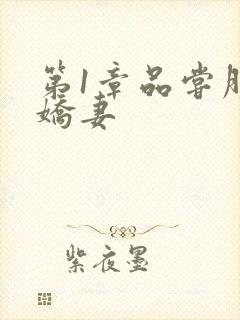 第1章品尝
娇妻
紫夜墨